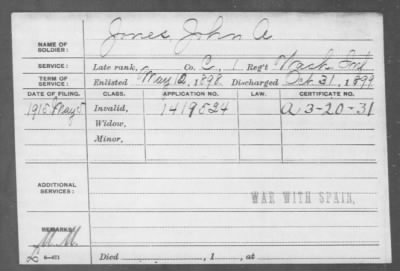 NAME OF SOLDIER: Jones, John A
SERVICE: Late rank, Co. C, 1 Reg't Wash. Inf.
TERM OF SERVICE: Enlisted May 10, 1898 Discharged Oct. 31, 1899
DATE OF FILING. CLASS. APPLICATION NO. LAW. CERTIFICATE NO.
1918 May Invalid, 1419524 A 3-20-31
Widow,
Minor,
ADDITIONAL SERVICES: WAR WITH SPAIN.
REMARKS:
6-471 Died , 1 , at